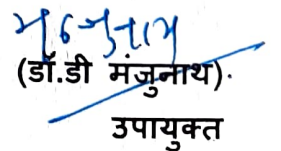 मंजुनाथ
(डॉ.डी मंजुनाथ).
उपायुक्त